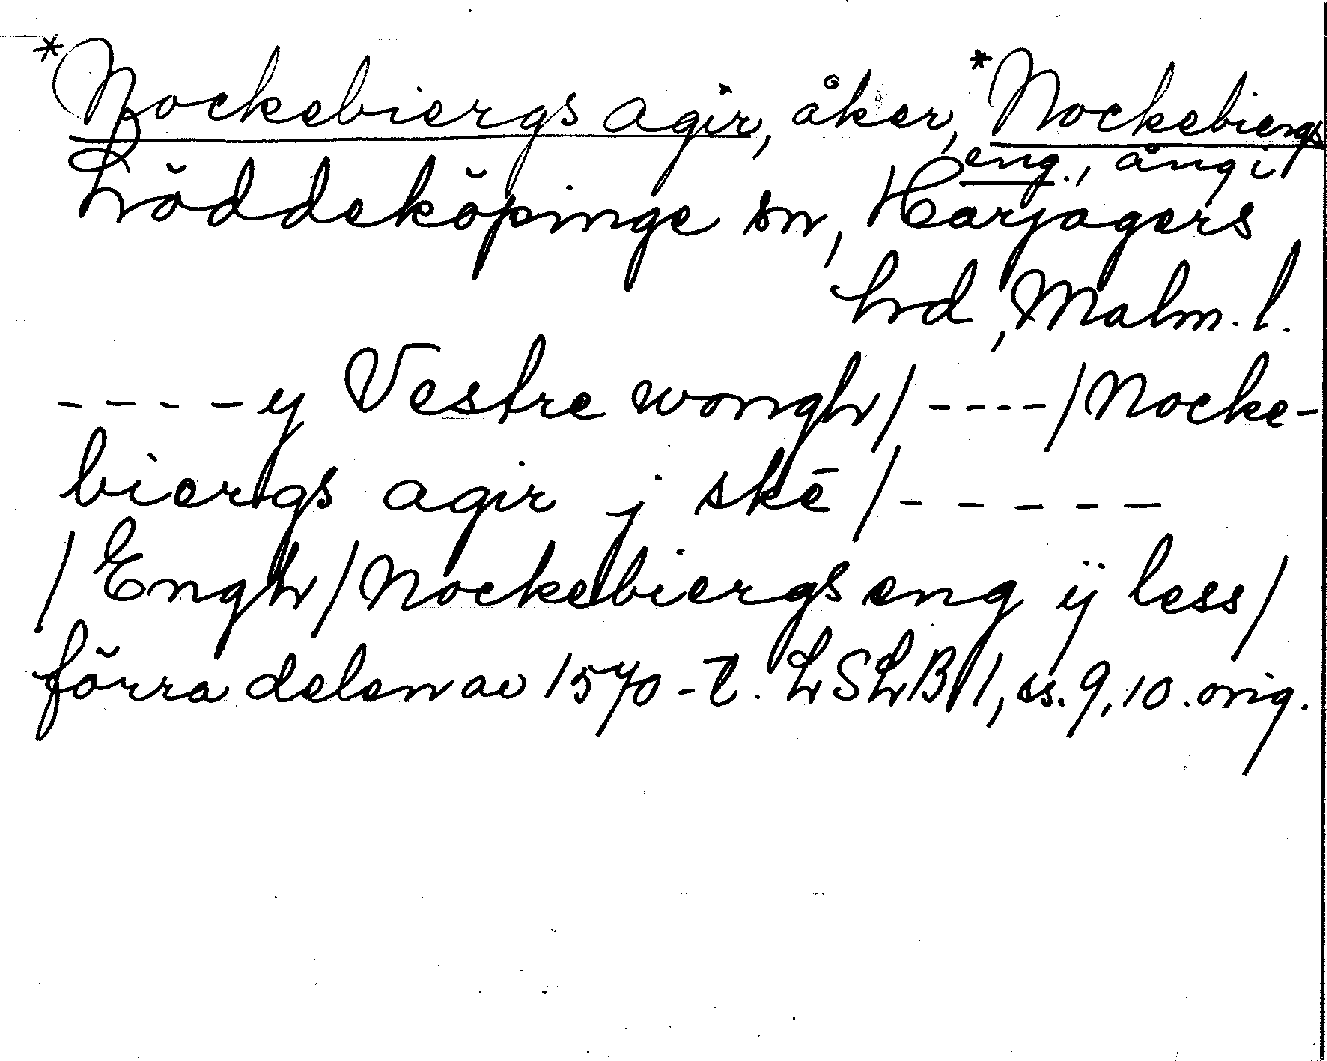 *Nockebiergs agir, åker, *Nockebiergs
eng., äng i
Löddeköpinge sn, Harjagers
hd, Malm. l.
- - - - y Vestre wongh / - - - - / Nocke-
biergs agir j skē / - - - - -
/ Engh / Nockebiergs eng ij less /
förra delen av 1570-t. LSLB 1, ss. 9, 10. orig.